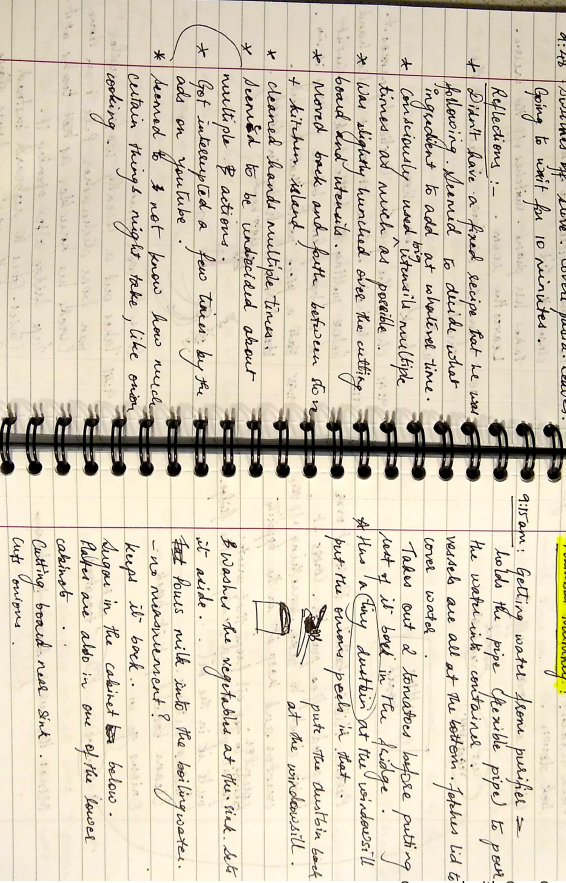 Going to wait for 10 minutes.
Reflections :-
* Didn't have a fixed recipe that he was
following. Seemed to decide what
ingredient to add at whatever time.
* Consciously used big utensils multiple
times as much as possible.
* Was slightly hunched over the cutting
board and utensils.
* Moved back and forth between stove
+ kitchen island.
* Cleaned hands multiple times.
* Seemed to be undecided about
multiple actions.
* Got interrupted a few times by the
ads on Youtube.
* Seemed to not know how much
certain things might take, like onion
cooking.
9:15am: Getting water from purifier -
holds the pipe (flexible pipe) to pour
the water into container
vessels are all at the bottom. Fetches lid to
cover water.
Takes out 2 tomatoes before putting
rest of it back in the fridge.
* Has a tiny dustbin at the windowsill
put the onion peels in that.
puts the dustbin back
at the windowsill.
Washes the vegetables at the sink. Sets
it aside.
Pours milk into the boiling water.
- no measurement?
keeps it back.
Sugar in the cabinet below.
Plates are also in one of the lower
cabinets.
Cutting board near sink.
Cuts onions.